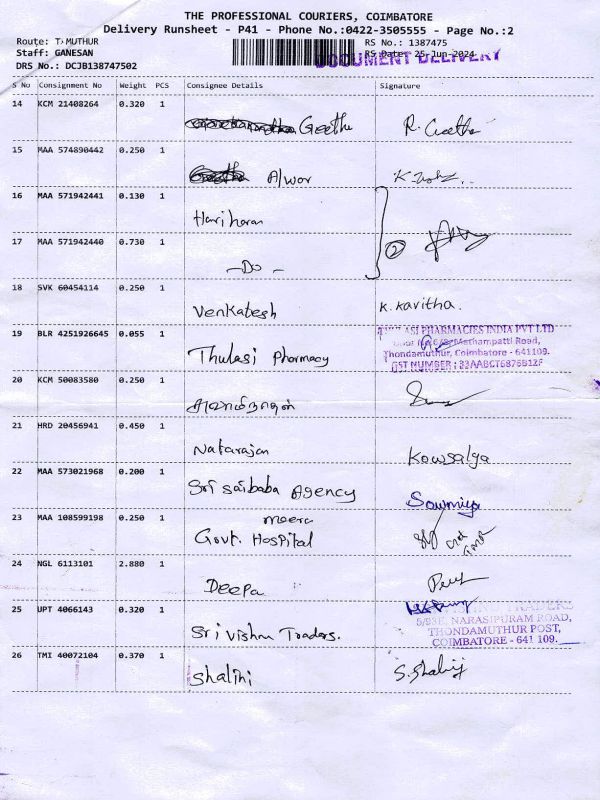 THE PROFESSIONAL COURIERS, COIMBATORE
Delivery Runsheet - P41 - Phone No.:0422-3505555 - Page No.:2
Route: T MUTHUR
RS No.: 1387475
Staff: GANESAN
RS Date: 25-Jun-2024
DOCUMENT DELIVERY
DRS No.: DCJB138747502
S No Consignment No Weight PCS Consignee Details Signature
14 KCM 21408264 0.320 1
Geetha R. Geetha
15 MAA 574890442 0.250 1
Alwar
16 MAA 571942441 0.130 1
Hariharan
17 MAA 571942440 0.730 1
2
-Do-
18 SVK 60454114 0.250 1
Venkatesh K. Kavitha.
19 BLR 4251926645 0.055 1
THULASI PHARMACIES INDIA PVT LTD
Mathampatti Road,
Thulasi Pharmacy
Thondamuthur, Coimbatore - 641109.
GST NUMBER : 33AABCT6876B1ZF
20 KCM 50083580 0.250 1
21 HRD 20456941 0.450 1
Natarajan Kowsalya
22 MAA 573021968 0.200 1
Sri Saibaba Agency Sowmiya
23 MAA 108599198 0.250 1
meera
Govt. Hospital
24 NGL 6113101 2.880 1
Deepa
25 UPT 4066143 0.320 1
TRADERS
5/93E, NARASIPURAM ROAD,
Sri Vishnu Traders.
THONDAMUTHUR POST,
COIMBATORE - 641 109.
26 TMI 40072104 0.370 1
Shalini S. Shalinj